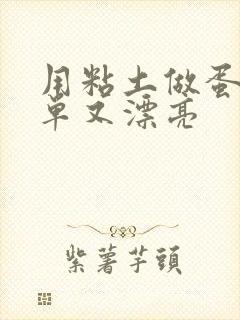 用粘土做蛋
单又漂亮
紫薯芋頭